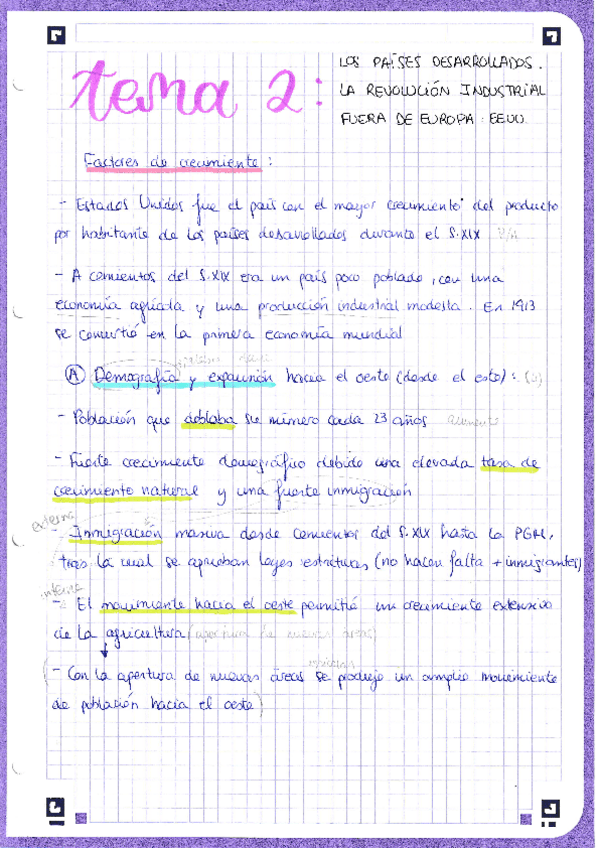 tema 2:
LOS PAÍSES DESARROLLADOS.
LA REVOLUCIÓN INDUSTRIAL
FUERA DE EUROPA: EEUU
Factores de crecimiento:
- Estados Unidos fue el país con el mayor crecimiento del producto
por habitante de los países desarrollados durante el S.XIX
- A comientos del S.XIX era un país poco poblado, con una
economía agrícola y una producción industrial modesta. En 1913
se convirtió en la primera economía mundial
A Demografía y expansión hacia el oeste (desde el este):
- Población que doblaba su número cada 23 años aumento
- Fuerte crecimiento demográfico debido una elevada tasa de
crecimiento natural y una fuerte inmigración
externa
- Inmigración masiva desde comientos del S.XIX hasta la PGM,
tras la cual se aprueban leyes restrictivas (no hacen falta + inmigrantes)
interna
- El movimiento hacia el oeste permitió un crecimiento extensivo
de la agricultura (apertura de nuevas áreas)
(- Con la apertura de nuevas áreas se produjo un amplio movimiento
de población hacia el oeste)